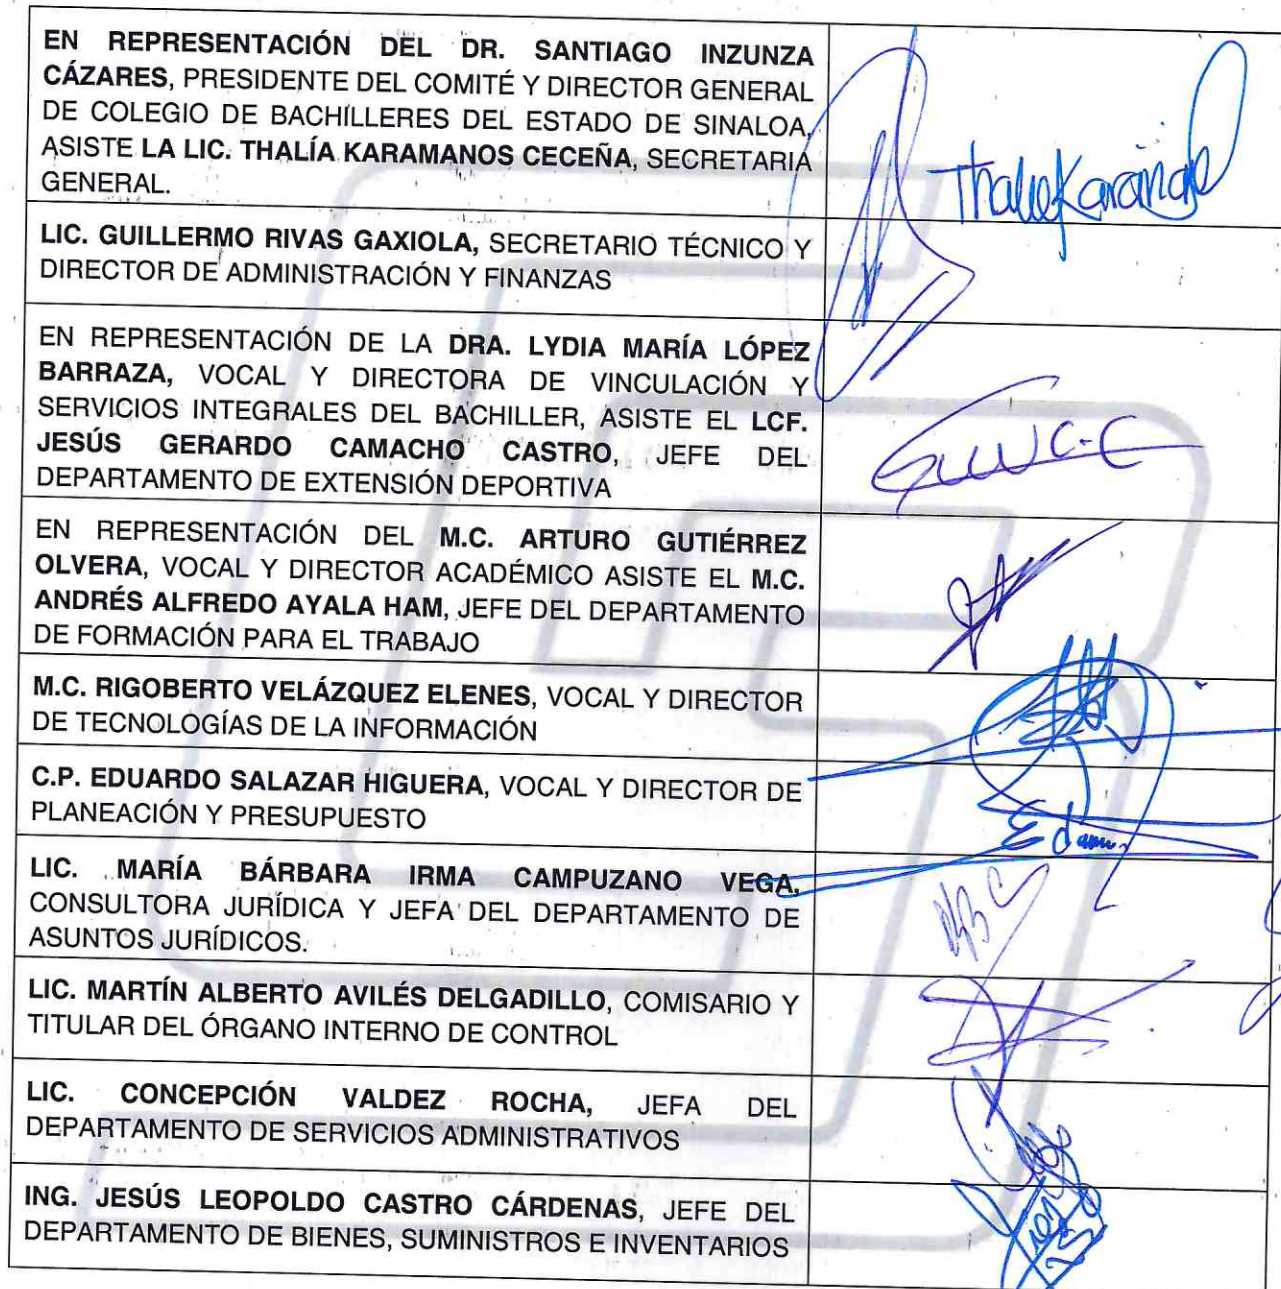 EN REPRESENTACIÓN DEL DR. SANTIAGO INZUNZA
CÁZARES, PRESIDENTE DEL COMITÉ Y DIRECTOR GENERAL
DE COLEGIO DE BACHILLERES DEL ESTADO DE SINALOA,
ASISTE LA LIC. THALÍA KARAMANOS CECEÑA, SECRETARIA
GENERAL.
LIC. GUILLERMO RIVAS GAXIOLA, SECRETARIO TÉCNICO Y
DIRECTOR DE ADMINISTRACIÓN Y FINANZAS
EN REPRESENTACIÓN DE LA DRA. LYDIA MARÍA LÓPEZ
BARRAZA, VOCAL Y DIRECTORA DE VINCULACIÓN Y
SERVICIOS INTEGRALES DEL BACHILLER, ASISTE EL LCF.
JESÚS GERARDO CAMACHO CASTRO, JEFE DEL
DEPARTAMENTO DE EXTENSIÓN DEPORTIVA
EN REPRESENTACIÓN DEL M.C. ARTURO GUTIÉRREZ
OLVERA, VOCAL Y DIRECTOR ACADÉMICO ASISTE EL M.C.
ANDRÉS ALFREDO AYALA HAM, JEFE DEL DEPARTAMENTO
DE FORMACIÓN PARA EL TRABAJO
M.C. RIGOBERTO VELÁZQUEZ ELENES, VOCAL Y DIRECTOR
DE TECNOLOGÍAS DE LA INFORMACIÓN
C.P. EDUARDO SALAZAR HIGUERA, VOCAL Y DIRECTOR DE
PLANEACIÓN Y PRESUPUESTO
LIC. MARÍA BÁRBARA IRMA CAMPUZANO VEGA,
CONSULTORA JURÍDICA Y JEFA DEL DEPARTAMENTO DE
ASUNTOS JURÍDICOS.
LIC. MARTÍN ALBERTO AVILÉS DELGADILLO, COMISARIO Y
TITULAR DEL ÓRGANO INTERNO DE CONTROL
LIC. CONCEPCIÓN VALDEZ ROCHA, JEFA DEL
DEPARTAMENTO DE SERVICIOS ADMINISTRATIVOS
ING. JESÚS LEOPOLDO CASTRO CÁRDENAS, JEFE DEL
DEPARTAMENTO DE BIENES, SUMINISTROS E INVENTARIOS